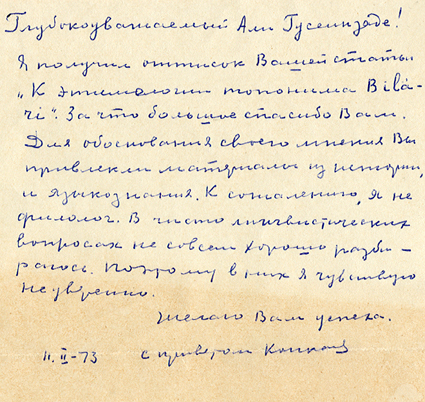 Глубокоуважаемый Али Гусейнзаде!
Я получил оттиск Вашей статьи
„К этимологии топонима Bilä-
ri". За что большое спасибо Вам.
Для обоснования своего мнения Вы
привлекли материалы из истории,
и языкознания. К сожалению, я не
филолог. В чисто лингвистических
вопросах не совсем хорошо разби-
раюсь. Поэтому в них я чувствую
неуверенно.
Желаю Вам успеха.
11.II-73 с приветом